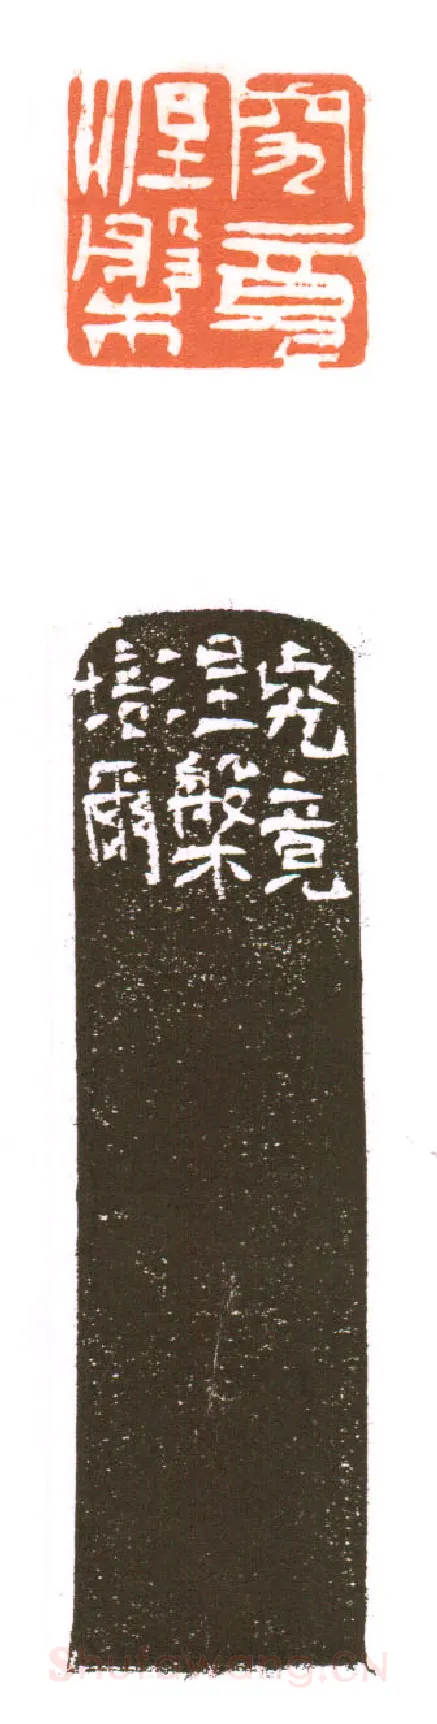 究竟
涅槃
究竟
涅槃
培爾
Shufawang.CN